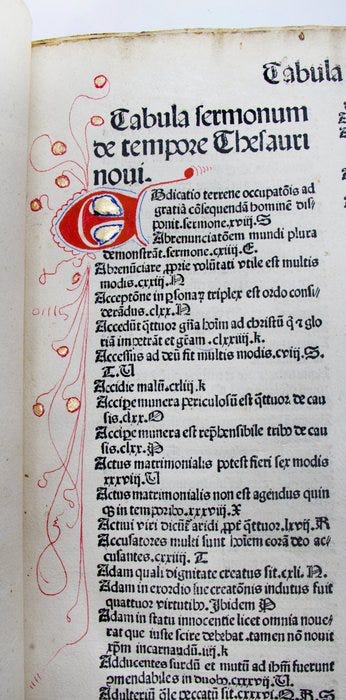 Tabula
Tabula sermonum
de tempore Thesauri
noui.
Abdicatio terrene occupatōis ad
gratiā cōsequendā hominē dis⸗
ponit.sermone.xviij.S
Abrenunciatōem mundi plura
demonstrāt.sermone.cxiij.E.
Abrenūciare ꝓprie volūtati vtile est multis
modis.cxxiij.N
Acceptōne in psonaꝝ triplex est ordo consi⸗
derādus.clxx.N
Accedūt q̄ttuor gn̄a hoīm ad christū q̄ ⁊ glo
riā impetrāt et gr̄am.clxxiiij.k.
Accessus ad deū fit multis modis.cviij.S.
T.U
Accidie malū.cxliij.k
Accipe munera periculosū est q̄ttuor de cau
sis.clxx.O
Accipe munera est rep̄hensibile tribꝰ de cau
sis.clxx.P
Actus matrimonialis potest fieri sex modis
xxxviij.U
Actus matrimonialis non est agendus quin
qꝫ in temporibꝰ.xxxviij.X
Actiui viri dicūt̄ aridi ꝓpt̄ q̄ttuor.lxvij.R
Accusatores multi sunt hoīem corā deo ac⸗
cusantes.cxxiiij. T
Adam quali dignitate creatus sit.cxli. N.
Adam in exordio sue creatōnis indutus fuit
quattuor virtutibꝰ. Ibidem P
Adam in statu innocentie licet omnia noue⸗
rat que iuste scire debebat .tamen nō nouit
xp̄m incarnandū.iij.k
Adducentes surdū et mutū ad ihm̄ fuerunt
cōmendabiles in duobꝰ.cxxxvij.U.
Adulteriū q̄le peccatū sit.cxxvi.Q.R.S